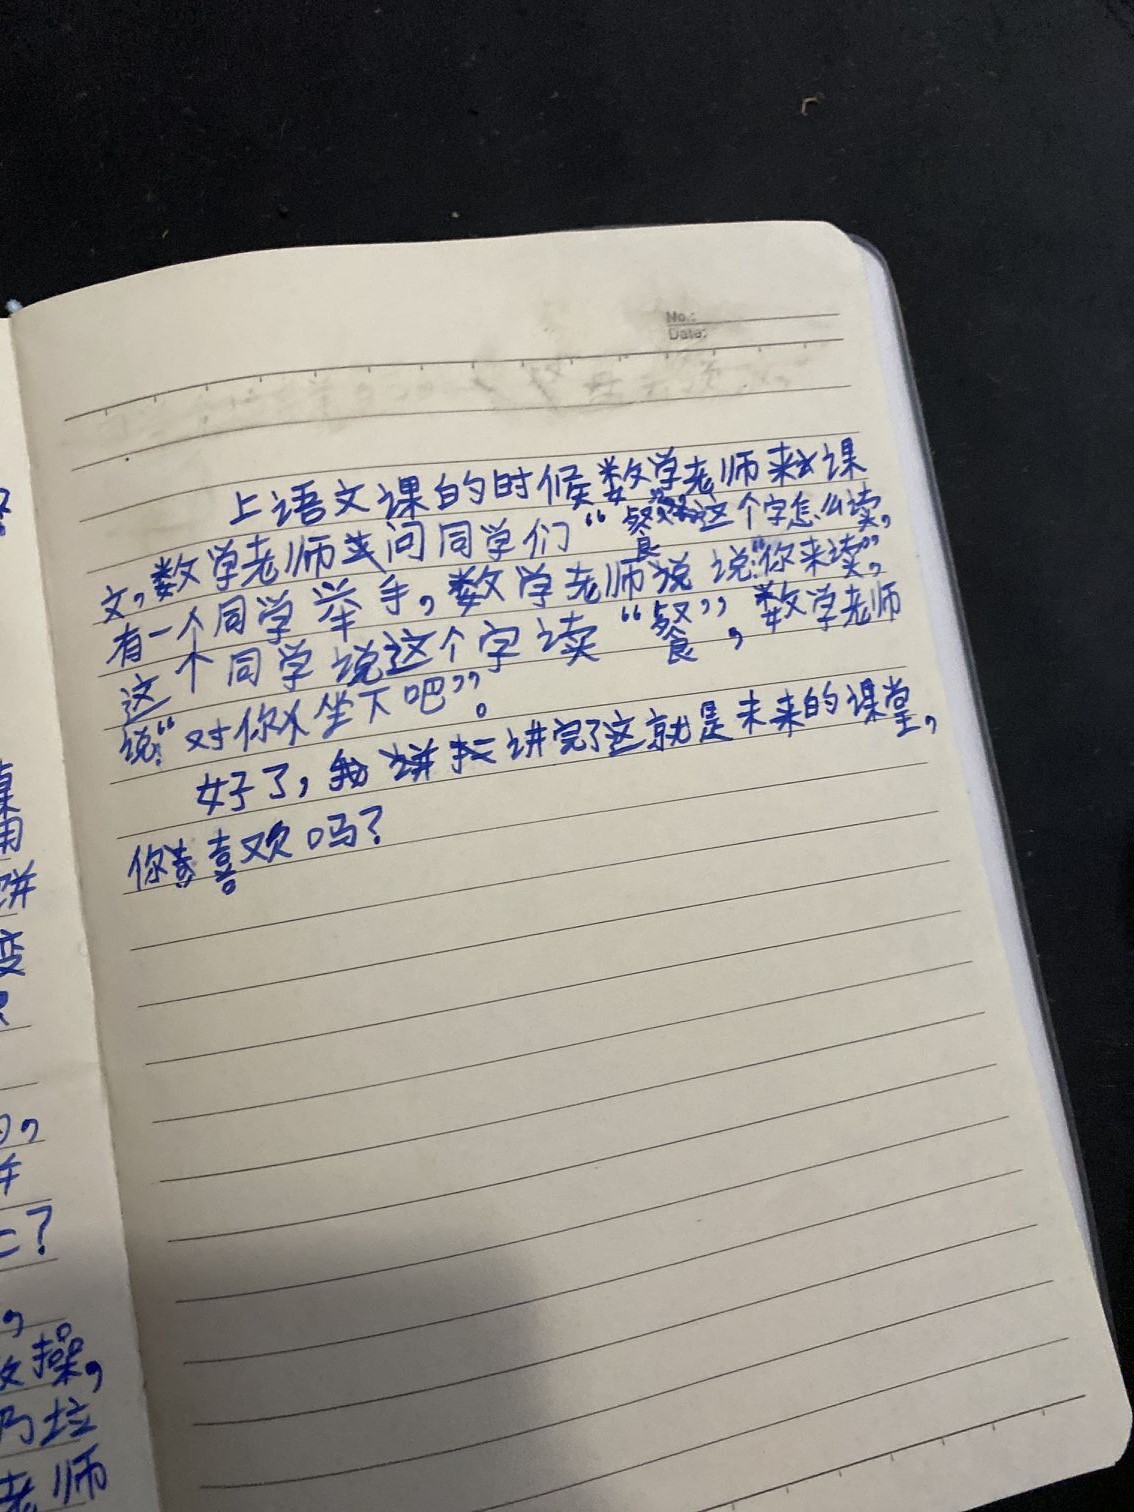 No.:
Date:
上语文课的时候数学老师来课
文,数学老师问同学们“餐”这个字怎么读,
有一个同学举手,数学老师说:“你来读”,
这个同学说这个字读“餐”,数学老师
说:“对你坐下吧”。
好了,讲完了这就是未来的课堂,
你喜欢吗?
饼
变
?
,
操,
垃
老师